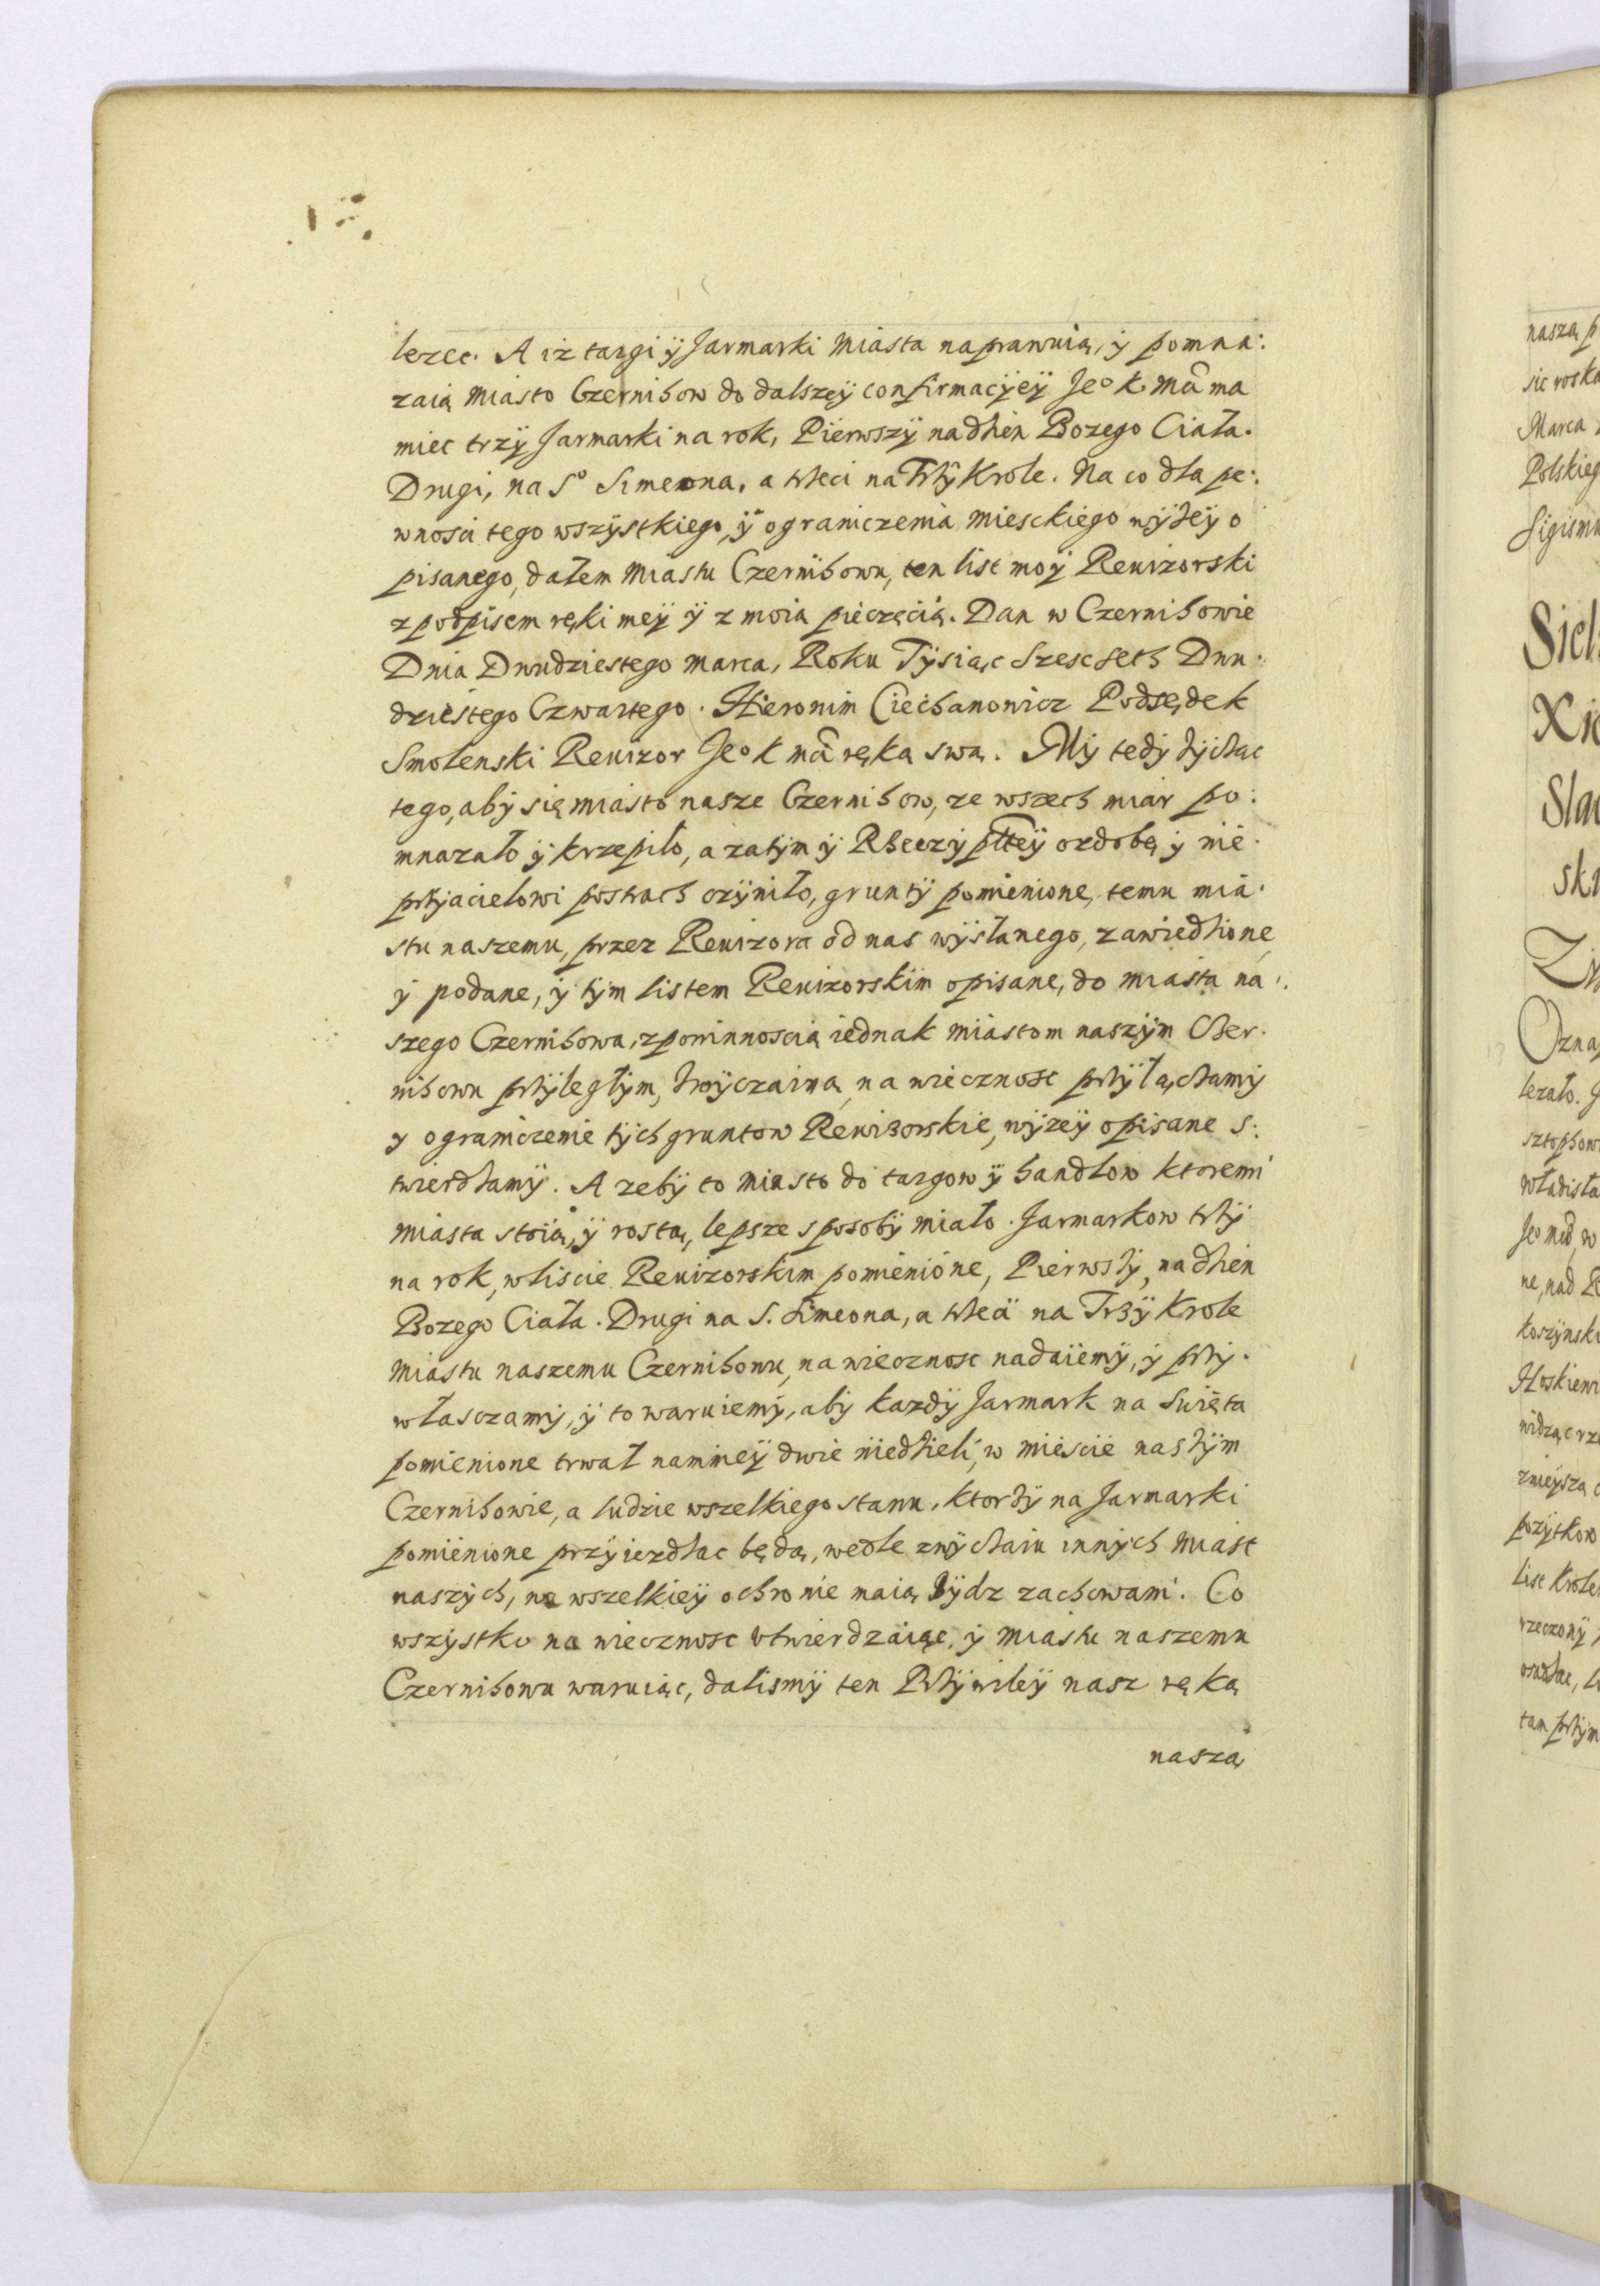 lezec. A iz targi ÿ Jarmarki Miasta naprawuią, ÿ pomna:
zaią Miasto Czernihow do dalszeÿ confirmacÿeÿ Jeº K Mâ ma
miec trzÿ Jarmarki na rok, Pierwszÿ na dzien Bozego Ciała.
Drugi, na Sº Simeona, a trzeci na Trzÿ Krole. Na co dla pe:
wnosci tego wszÿstkiego, ÿ ograniczenia miesckiego wÿzeÿ o
pisanego, dałem Miastu Czernihowu, ten list moÿ Rewizorski
z podpisem ręki meÿ ÿ z moią pieczęcią. Dan w Czernihowie
Dnia Dwudziestego Marca, Roku Tÿsiąc Szescseth Dwu.
dziestego Czwartego. Hieronim Ciechanowicz Podsędek
Smolenski Rewizor Jeº K mâ ręka swą. Mÿ tedÿ zÿcząc
tego, abÿ się miasto nasze Czernihow, ze wszech miar po:
mnazało ÿ krzepiło, a zatÿm ÿ Rzeczÿ ptteÿ ozdobę ÿ nie.
przÿiacielowi postrach czÿniło, gruntÿ pomienione, temu mia.
stu naszemu, przez Rewizora od nas wÿsłanego, zawiedzione,
ÿ podane, ÿ tÿm listem Rewizorskim opisane, do miasta na:
szego Czernihowa, z powinnoscią iednak miastom naszÿm Czer.
nihowu przÿległÿm, zwÿczaÿną, na wiecznosc przÿłączamÿ
y ograniczenie tÿch gruntow Rewizorskie, wÿzeÿ opisane s:
twierdzamÿ. A zebÿ to miasto do targow ÿ handlow ktoremi
miasta stoią, ÿ rostą, lepsze sposobÿ miało. Jarmarkow trzÿ
na rok, w liscie Rewizorskim pomienione, Pierwszÿ, na dzien
Bozego Ciała. Drugi na S. Simeona, a trzeci na Trzÿ Krole
miastu naszemu Czernihowu, na wiecznosc nadaiemÿ, ÿ przÿ.
właszczamÿ, ÿ to waruiemÿ, abÿ kazdÿ Jarmark na Swięta
pomienione trwał namnieÿ dwie niedzieli, w miescie naszÿm
Czernihowie, a ludzie wszelkiego stanu, ktorzÿ na Jarmarki
pomienione przÿiezdzac będą, wedle zwÿczaiu innÿch miast
naszÿch, na wszelkieÿ ochronie maią bÿdz zachowani. Co
wszÿstko na wiecznosc utwierdzaiąc, ÿ miastu naszemu
Czernihowu waruiąc, dalismÿ ten Przÿwileÿ nasz ręką
naszą
naszą p
sie roska
Marca
Polskieg
Sigism
Siel
Xi
Sla
sk
Ozna
lezało.
sztophow
Władisła
koszÿnski
widząc rz
znieÿszą
pozÿtkow
list Krole
rzeczonÿ
tam przÿm